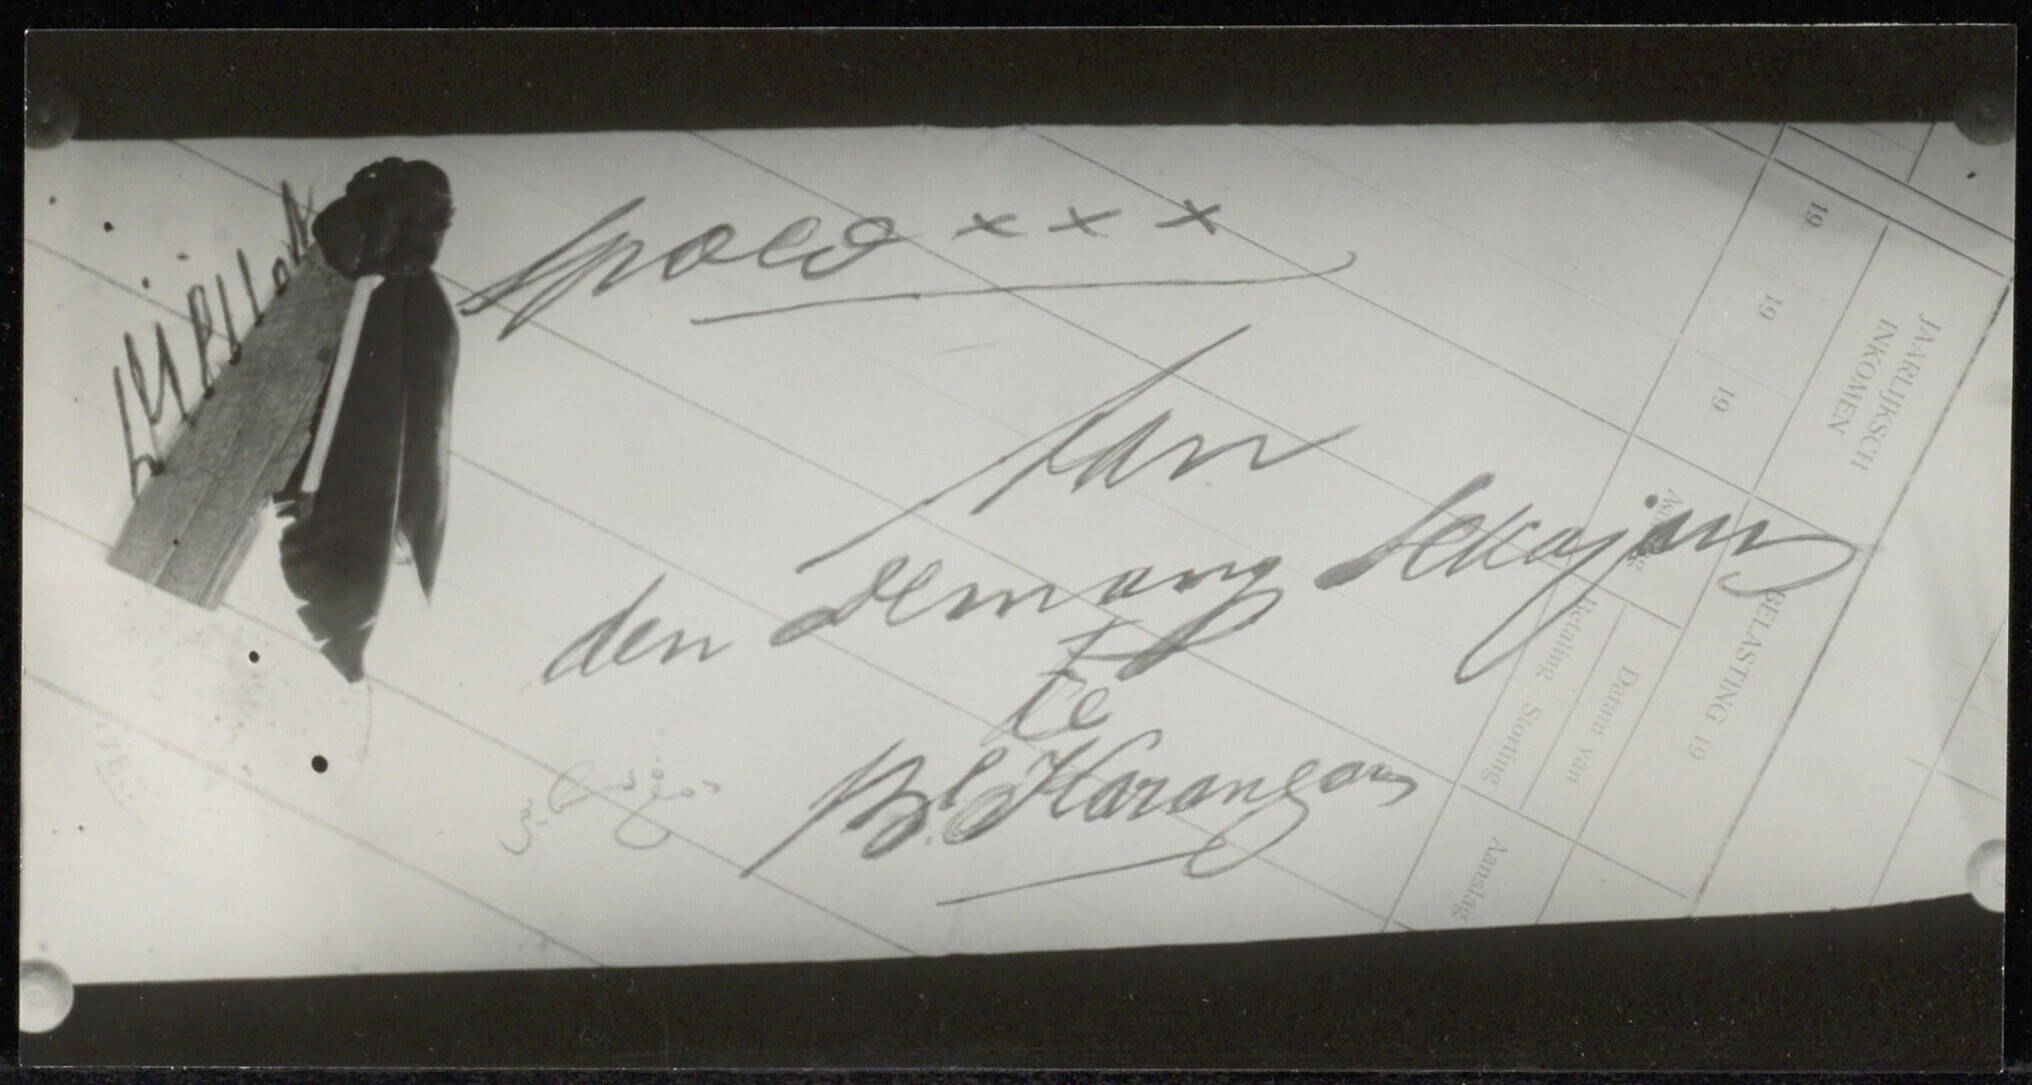 spoed x x x
Aan
den Demang Sekajam
te
Bl. Karangan
JAARLIJKSCH
INKOMEN
19
19
19
BELASTING 19
Datum van
Betaling Storting
Aanslag